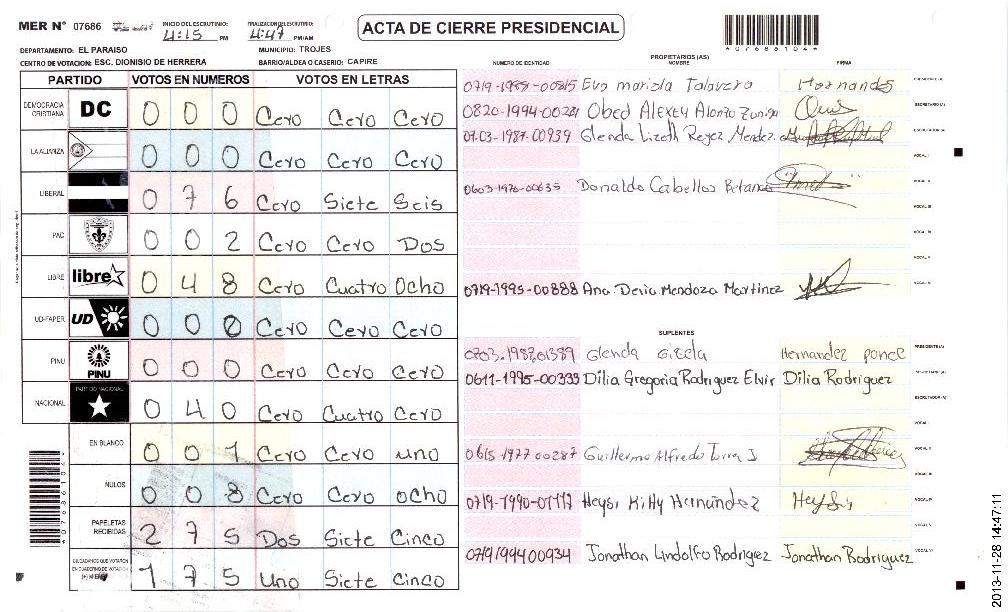 MER N° 07686 INICIO DEL ESCRUTINIO: 4:15 PM FINALIZACION DEL ESCRUTINIO: 4:47 PM/AM ACTA DE CIERRE PRESIDENCIAL
*07686104*
DEPARTAMENTO: EL PARAISO MUNICIPIO: TROJES
CENTRO DE VOTACION: ESC. DIONISIO DE HERRERA BARRIO/ALDEA O CASERIO: CAPIRE
PARTIDO VOTOS EN NUMEROS VOTOS EN LETRAS
DEMOCRACIA CRISTIANA DC 0 0 0 Cero Cero Cero
LA ALIANZA 0 0 0 Cero Cero Cero
LIBERAL 0 7 6 Cero Siete Seis
PAC 0 0 2 Cero Cero Dos
LIBRE libre 0 4 8 Cero Cuatro Ocho
UD-FAPER UD 0 0 0 Cero Cero Cero
PINU PINU 0 0 0 Cero Cero Cero
NACIONAL PARTIDO NACIONAL 0 4 0 Cero Cuatro Cero
EN BLANCO 0 0 1 Cero Cero uno
NULOS 0 0 8 Cero Cero ocho
PAPELETAS RECIBIDAS 2 7 5 Dos Siete Cinco
CIUDADANOS QUE VOTARON EN CUADERNO DE VOTACION (+) MER 1 7 5 Uno Siete Cinco
*07686104*
PROPIETARIOS (AS)
NUMERO DE IDENTIDAD NOMBRE FIRMA
0719-1985-00815 Eva mariela Talavera Hernandes PRESIDENTE (A)
0820-1994-00281 Obed Alexey Alonzo Zuniga SECRETARIO (A)
0703-1987-00939 Glenda Lizeth Reyez Mendez ESCRUTADOR (A)
VOCAL I
0603-1976-00635 Donaldo Cabellos Betanco VOCAL II
VOCAL III
VOCAL IV
VOCAL V
0719-1995-00888 Ana Deria Mendoza Martinez VOCAL VI
SUPLENTES
Glenda Gicela Hernandez ponce PRESIDENTE (A)
0611-1995-00333 Dilia Gregoria Rodriguez Elvir Dilia Rodriguez SECRETARIO (A)
ESCRUTADOR (A)
VOCAL I
0615-1977 00287 Guillermo Alfredo Torres J VOCAL II
VOCAL III
Heysi Kitty Hernandez Heysi VOCAL IV
VOCAL V
0719199400934 Jonathan Lindolfo Rodrigez Jonathan Rodriguez VOCAL VI
2013-11-28 14:47:11